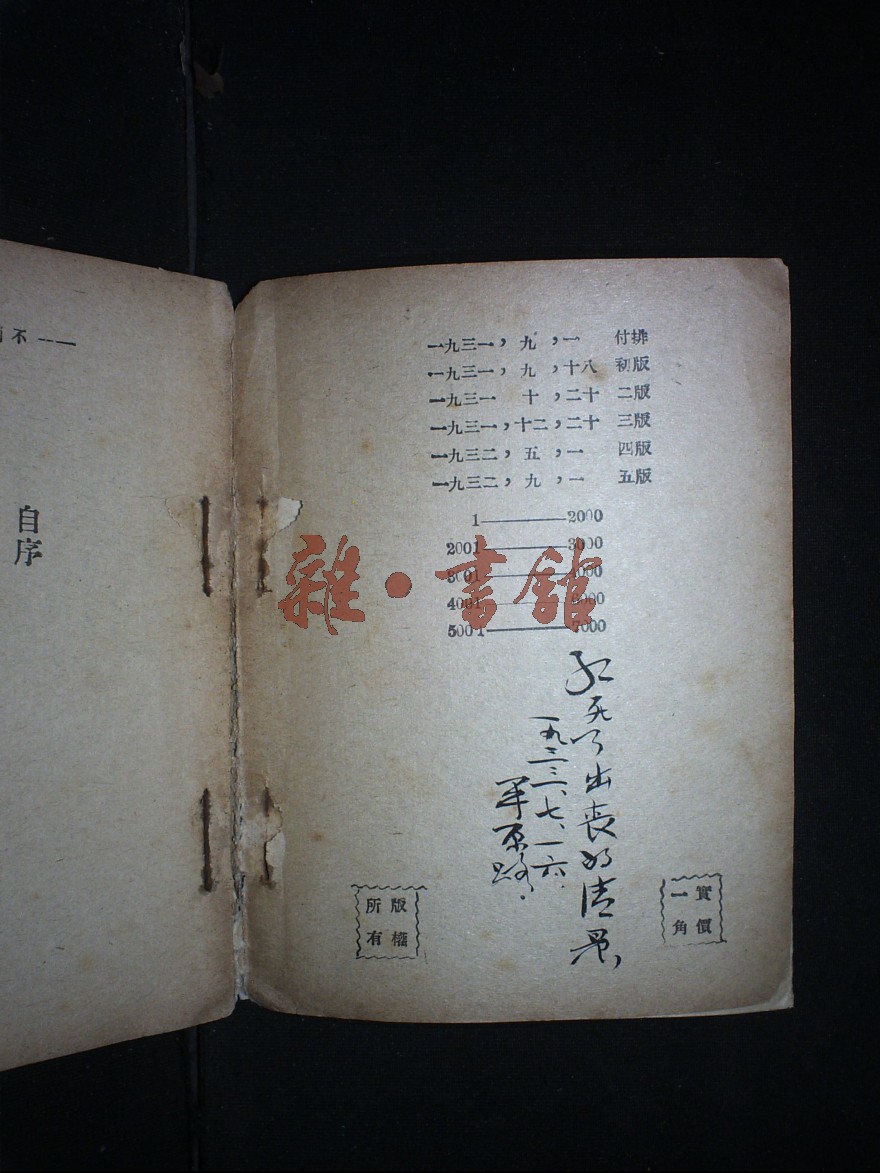 不——
自序
一九三一，九，一　付排
一九三一，九，十八　初版
一九三一　十，二十　二版
一九三一，十二，二十　三版
一九三二，五，一　四版
一九三二，九，一　五版
1————2000
2001————3000
3001————4000
4001————5000
5001————7000
雜·書館
死了出喪的情景
一九三三、七、一六.
版權所有
實價一角